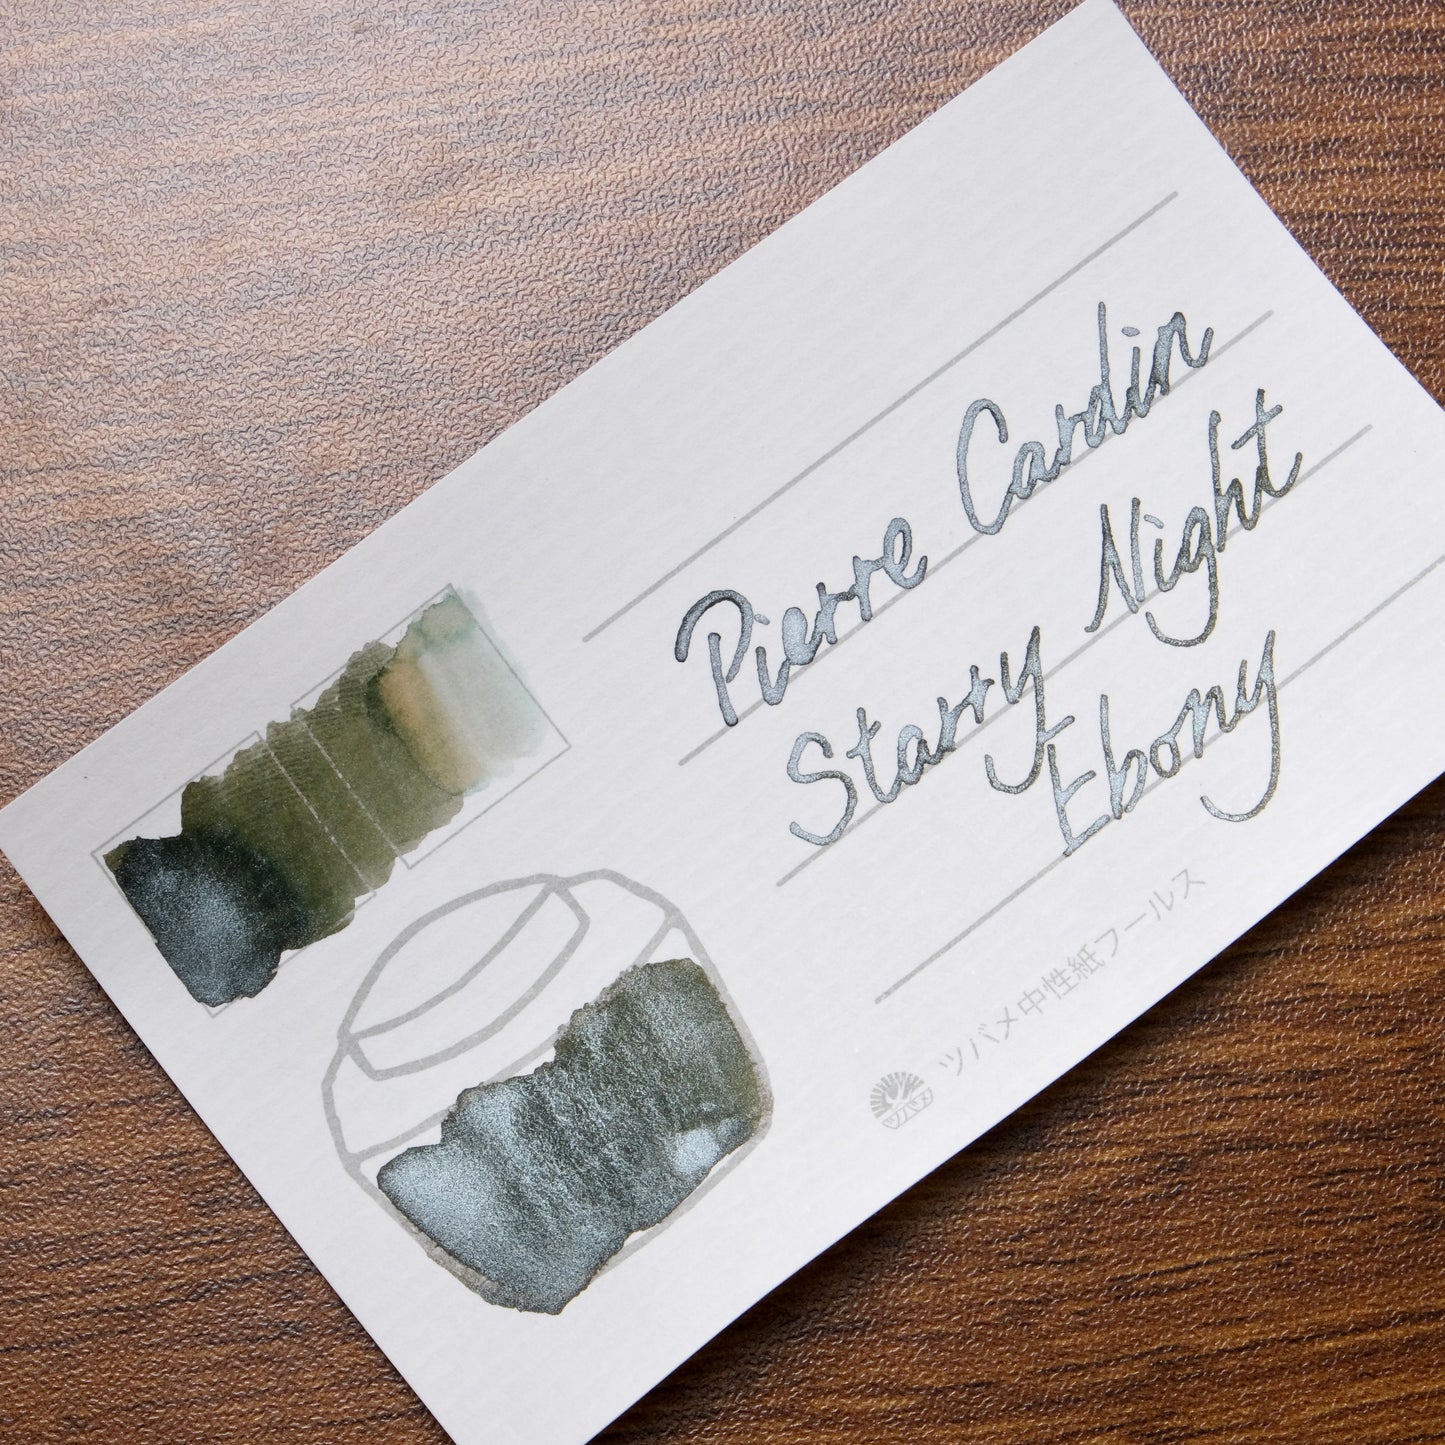 Pierre Cardin
Starry Night
Ebony
ツバメ中性紙フールス
ツバメ